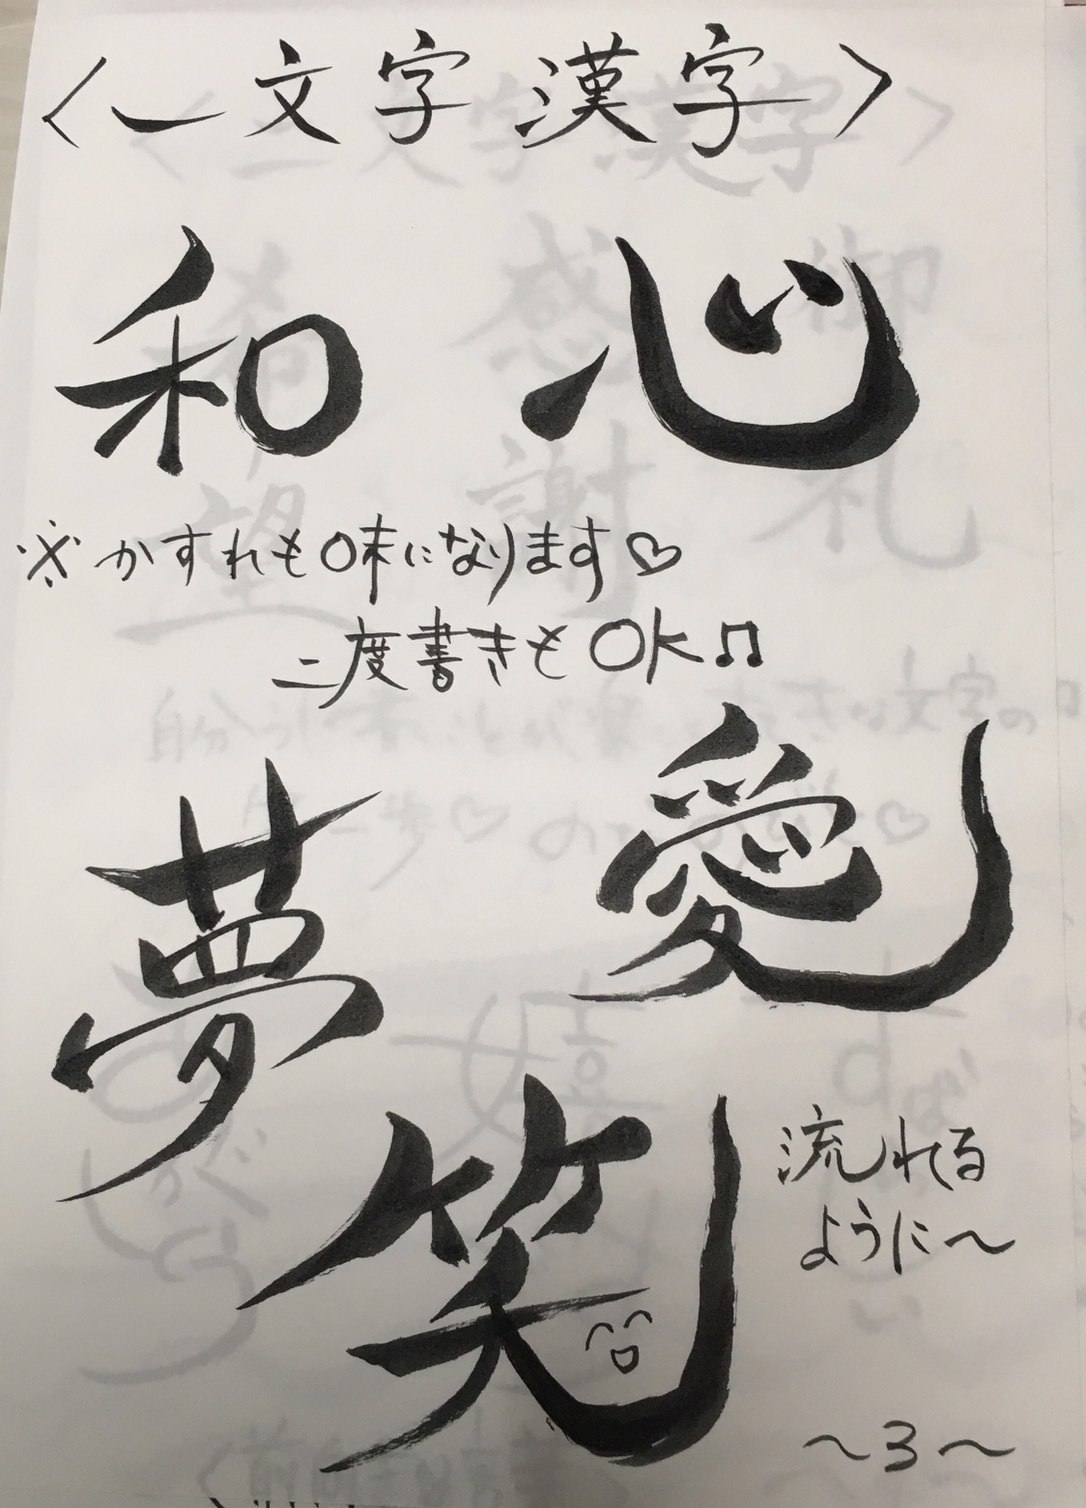 〈一文字漢字〉
和 心
※かすれも味になります♡
二度書きもOK♫
夢 愛
笑
流れる
ように〜
〜3〜